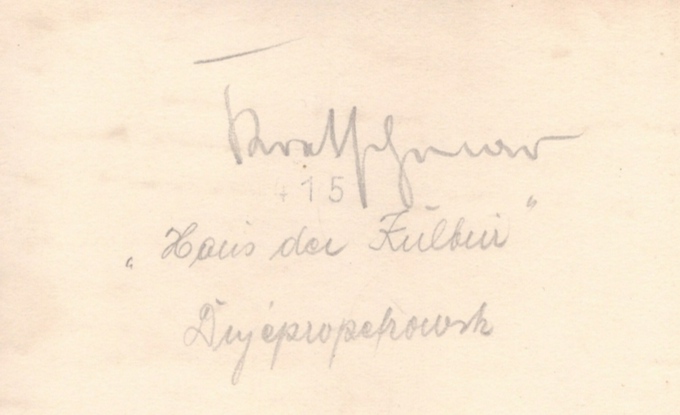 Kretschmar
415
„Haus der Kultur"
Dnjepropetrowsk